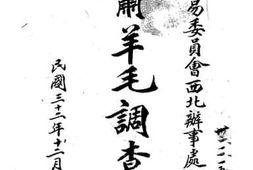 易委員會西北辦事處
羊毛調查
民國三十二年十二月